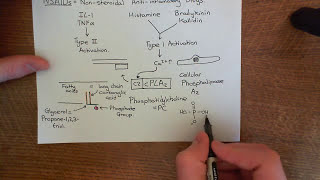 NSAIDs = Non-Steroidal Anti-inflammatory Drugs
IL-1
TNFα
Histamine
Bradykinin
Kallidin
Type II
Activation.
Type I
Activation.
Ca2++
C2 < PLA2
Cellular
Phospholipase
A2
Fatty
acids
= long chain
Carboxylic
acid
Glycerol =
Propane-1,2,3-
triol.
Phosphate
Group
Phosphatidylcholine
= PC
O
HO-P-OH